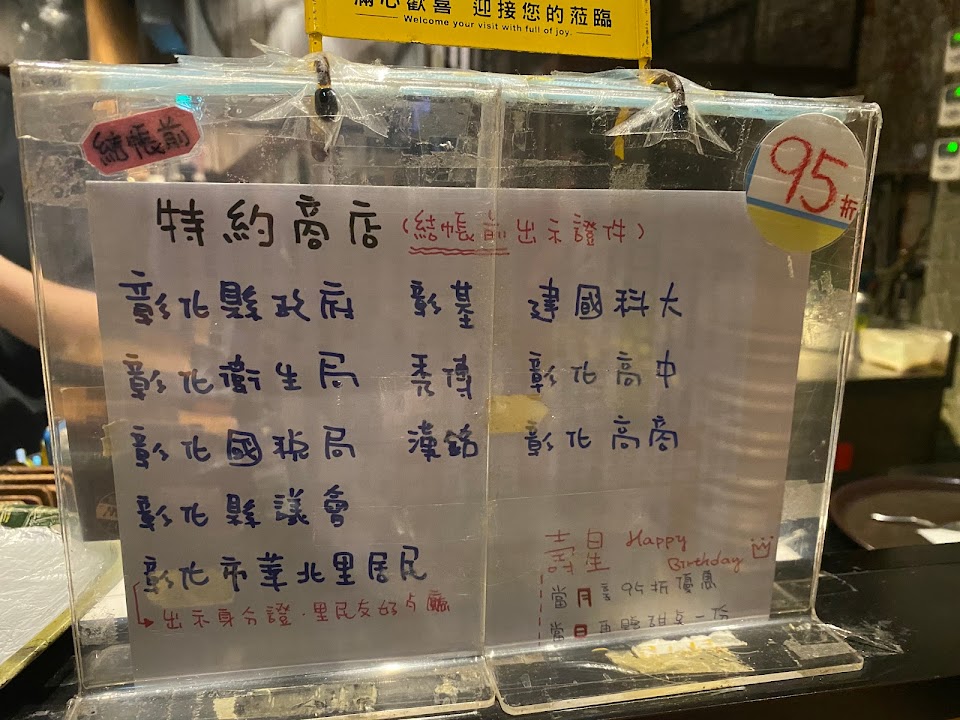 滿心歡喜 迎接您的蒞臨
Welcome your visit with full of joy.
結帳前
95折
特約商店(結帳前出示證件)
彰化縣政府 彰基 建國科大
彰化衛生局 秀傳 彰化高中
彰化國稅局 漢銘 彰化高商
彰化縣議會
彰化市華北里居民
出示身分證.里民友好店
壽星 Happy Birthday
當月享95折優惠
當日再贈甜點一份